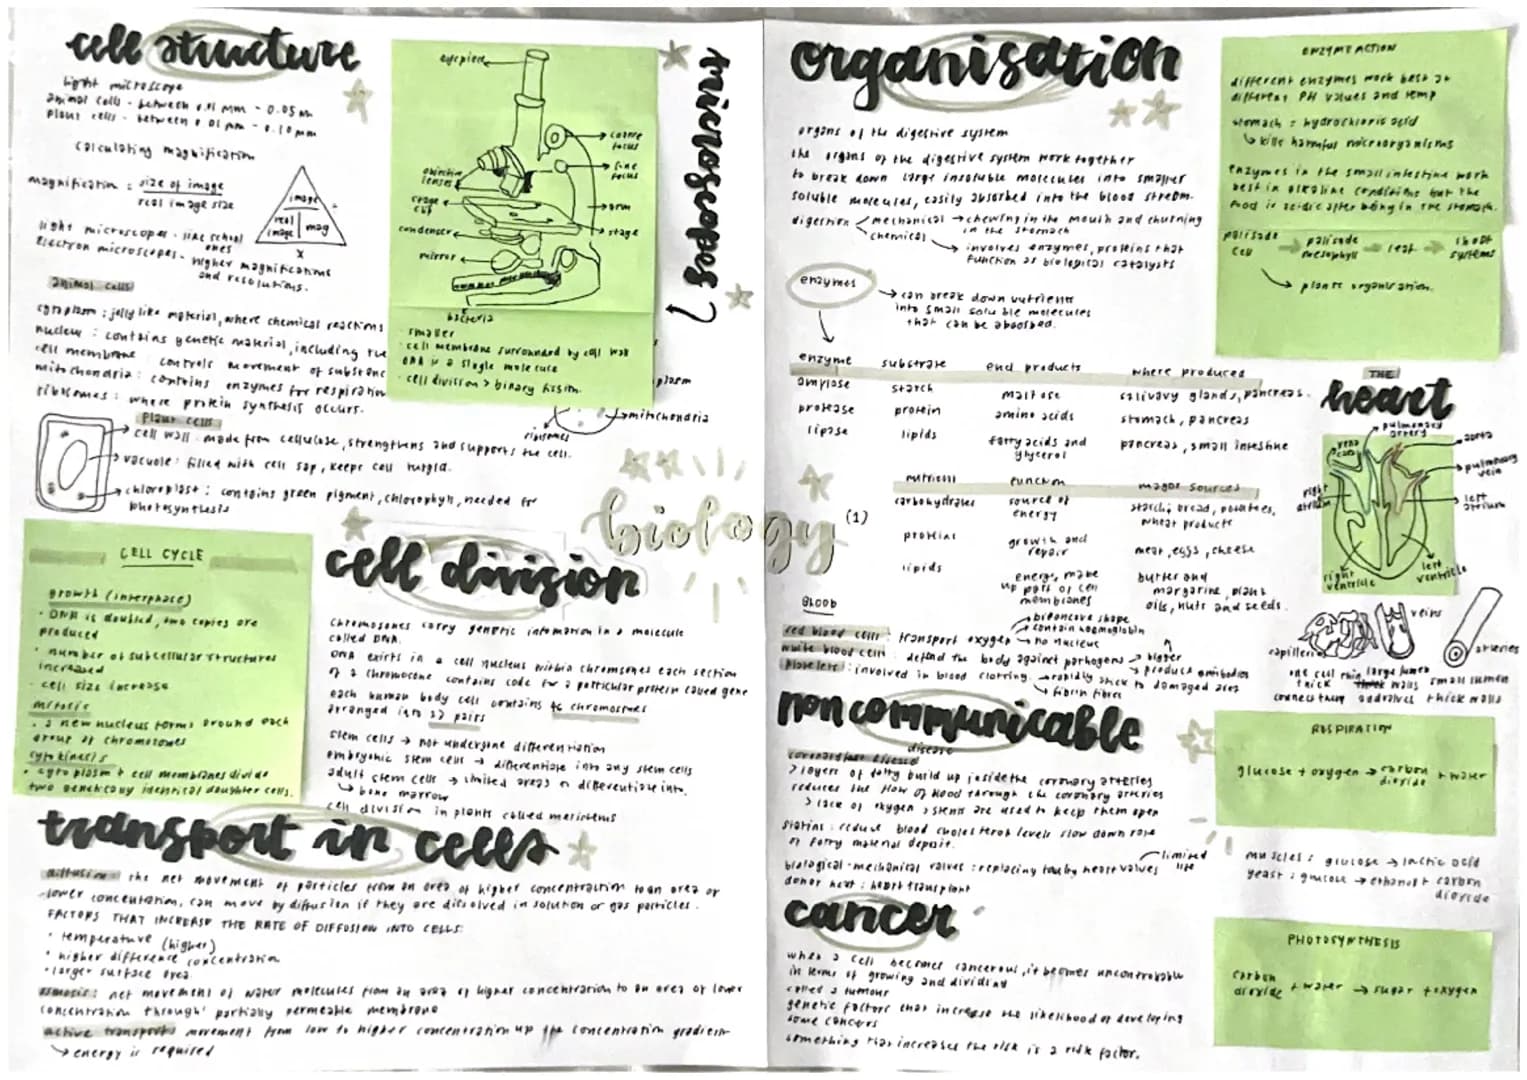 cell structure
light microscope
animal cells - between 0.01 mm - 0.05 mm
plant cells - between 0.01 mm - 0.10 mm
calculating magnification
magnification = size of image
real image size
image
real image
mag
x
light microscopes - like school ones
electron microscopes - higher magnifications
and resolutions.
animal cells
cytoplasm : jelly like material, where chemical reactions
nucleus : contains genetic material, including the
cell membrane : controls movement of substanc
mitochondria : contains enzymes for respiration
ribosomes : where protein synthesis occurs.
plant cells
cell wall - made from cellulose, strengthens and supports the cell.
vacuole : filled with cell sap, keeps cell turgid.
chloroplast : contains green pigment, chlorophyll, needed for
photosynthesis
microscopes
eyepiece
coarse
focus
fine
focus
objective
lenses
arm
stage
clip
stage
condenser
mirror
bacteria
- smaller
- cell membrane surrounded by cell wall
DNA is a single molecule
- cell division > binary fission.
plasm
mitochondria
ribosomes
biology (1)
CELL CYCLE
growth (interphase)
• DNA is doubled, two copies are
produced
• number of subcellular structures
increased
- cell size increase
mitosis
• a new nucleus forms around each
group of chromosomes
cytokinesis
• cytoplasm + cell membranes divide
two genetically identical daughter cells.
cell division
chromosomes carry genetic infomation in a molecule
called DNA.
DNA exists in a cell nucleus within chromsomes each section
of a chromosone contains code for a particular protein called gene
each human body cell contains 46 chromosomes
arranged into 23 pairs
stem cells → not undergone differentiation
embryonic stem cells → differentiate into any stem cells
adult stem cells → limited areas differentiate into.
↳ bone marrow
cell division in plants called meristems
transport in cells
diffusion: the net movement of particles from an area of higher concentration to an area of
lower concentration, can move by diffusion if they are dissolved in solution or gas particles.
FACTORS THAT INCREASE THE RATE OF DIFFUSION INTO CELLS:
• temperature (higher)
• higher difference concentration
• larger surface area.
osmosis : net movement of water molecules from an area of higher concentration to an area of lower
concentration through partially permeable membrane
active transport : movement from low to higher concentration up the concentration gradient
↳ energy is required
organisation
organs of the digestive system
the organs of the digestive system work together
to break down large insoluble molecules into smaller
soluble molecules, easily absorbed into the blood stream.
digestion mechanical → chewing in the mouth and churning
in the stomach
chemical → involves enzymes, proteins that
function as biological catalysts
enzymes → can break down nutrients
into small soluble molecules
that can be absorbed.
enzyme substrate end products where produced
amylase starch maltose salivary glands, pancreas.
protease protein amino acids stomach, pancreas
lipase lipids fatty acids and glycerol pancreas, small intestine
nutrient function major sources
carbohydrates source of energy starch, bread, potatoes, wheat products
proteins growth and repair meat, eggs, cheese
lipids energy, make up part of cell membranes butter and margarine, plant oils, nuts and seeds.
BLOOD
red blood cells : transport oxygen
→ biconcave shape
→ contain haemoglobin
→ no nucleus
white blood cells : defend the body against pathogens → bigger
→ produce antibodies
platelets : involved in blood clotting. → rapidly stick to damaged area
→ fibrin fibres
ENZYME ACTION
different enzymes work best at
different PH values and temp
stomach = hydrochloric acid
↳ kills harmful microorganisms
enzymes in the small intestine work
best in alkaline conditions but the
food is acidic after being in the stomach.
palisade cell → palisade mesophyll → leaf → shoot systems
→ plants organisation.
THE
heart
pulmonary
artery
vena
cava
aorta
pulmonary
vein
right
atrium
left
atrium
right
ventricle
left
ventricle
capilleries
veins
arteries
one cell
thick
connects them
thin large lumen
walls
and valves
small lumen
thick walls
non communicable
disease
coronary heart disease
> layers of fatty build up inside the coronary arteries
reduces the flow of blood through the coronary arteries
> lack of oxygen > stents are used to keep them open
statins : reduce blood cholesterol levels slow down rate
of fatty material deposit.
biological - mechanical valves : replacing faulty heart valves → limited
life
donor heart : heart transplant
RESPIRATION
glucose + oxygen → carbon
dioxide + water
muscles : glucose → lactic acid
yeast : glucose → ethanol + carbon
dioxide
cancer
when a cell becomes cancerous, it becomes uncontrollable
in terms of growing and dividing
called a tumour
genetic factors that increase the likelihood of developing
some cancers
something that increases the risk is a risk factor.
PHOTOSYNTHESIS
carbon
dioxide + water → sugar + oxygen